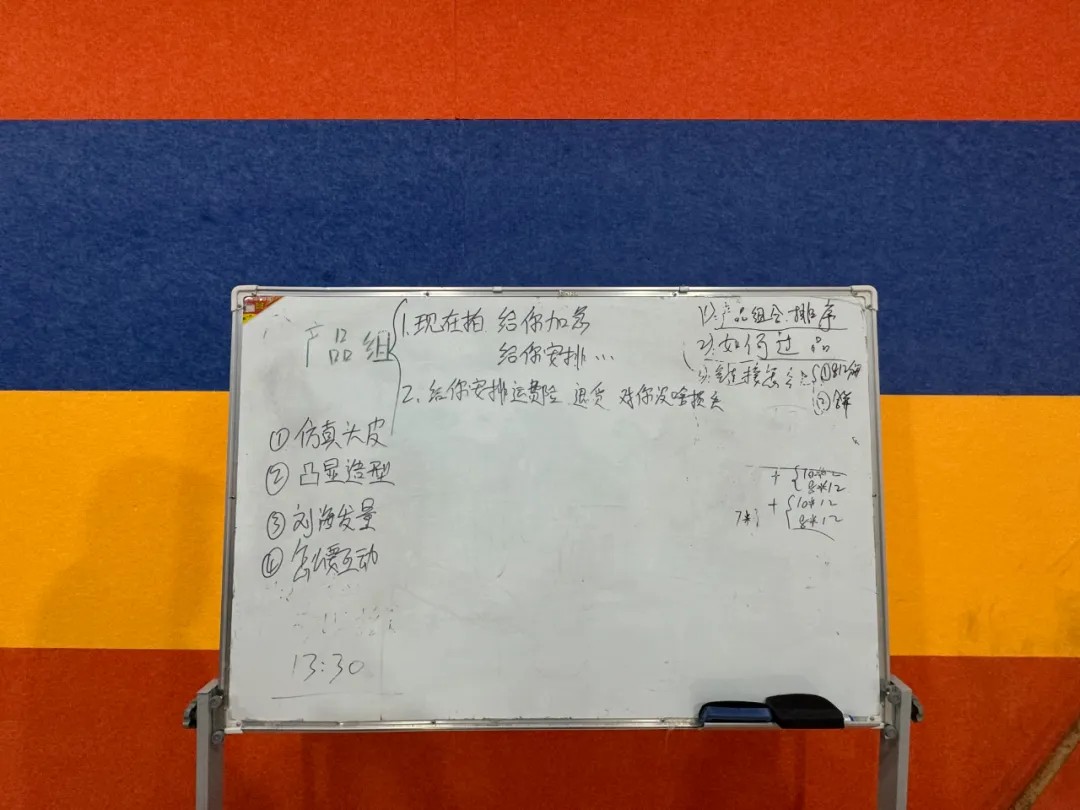 产品组
1.现在拍 给你加急
给你安排…
2.给你安排运费险 退货 对你没啥损失
① 仿真头皮
② 凸显造型
③ 刘海发量
④ 怎么互动
13:30
1)产品组合排序
2)如何过品
3)链接怎么
①
②
+ { 10*12
8*12
+ { 10*12
8*12